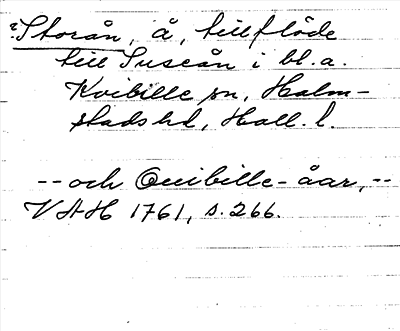 ?Storån, å, tillflöde
till Suseån i bl.a.
Kvibille sn, Halm-
stads hd, Hall. l.
-- och Quibille-åar, --
VAH 1761, s. 266.